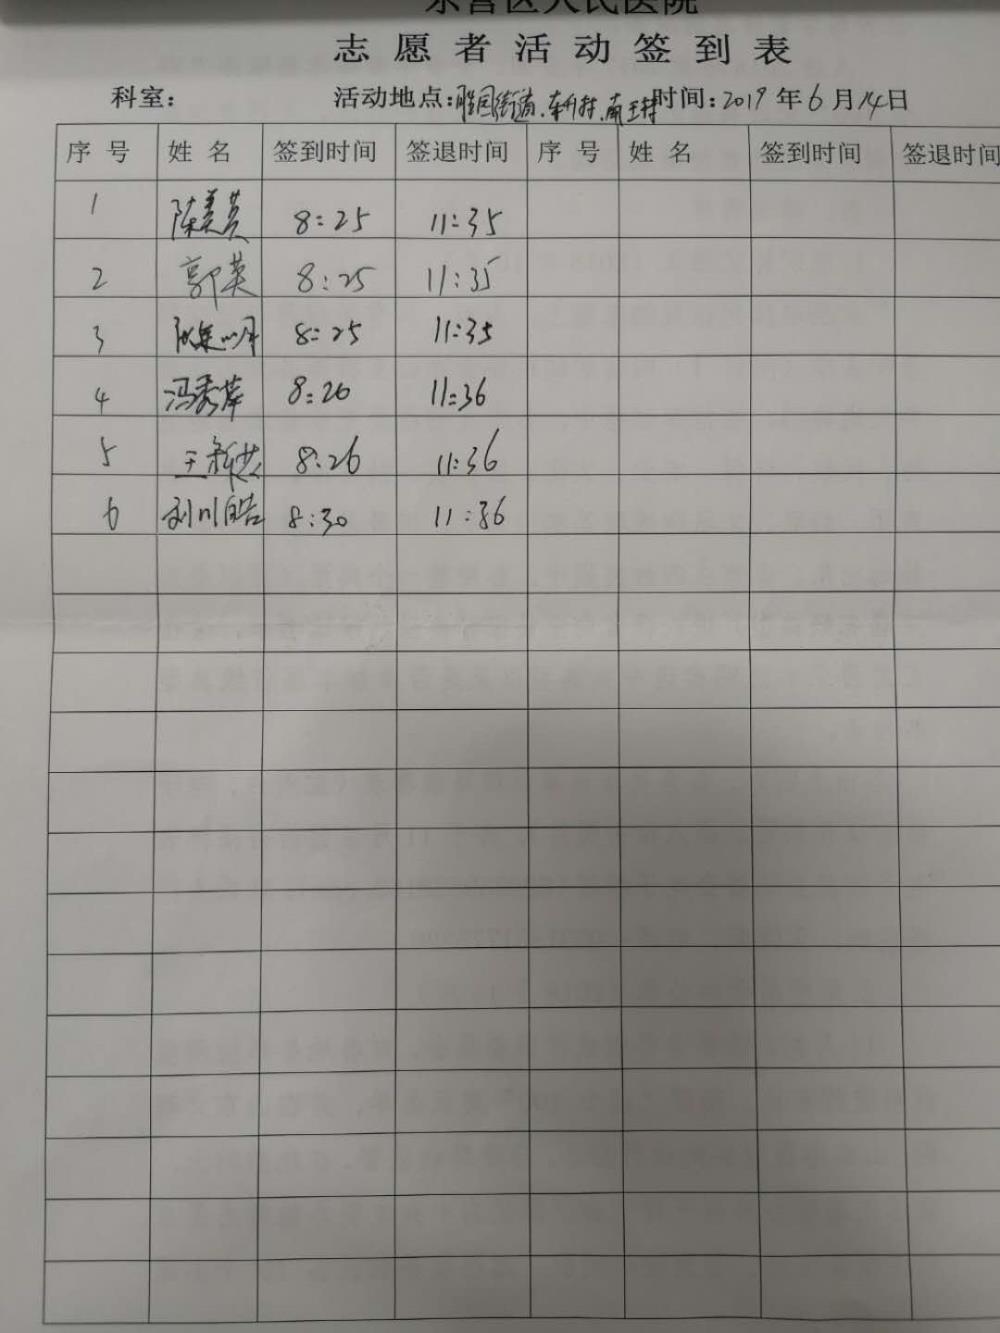 东营区人民医院
志愿者活动签到表
科室： 活动地点：胜园街道、 南王村 时间：2019年6月14日
序号 姓名 签到时间 签退时间 序号 姓名 签到时间 签退时间
1 陈美英 8:25 11:35
2 郭英 8:25 11:35
3 8:25 11:35
4 冯秀萍 8:26 11:36
5 8:26 11:36
6 刘川皓 8:30 11:36